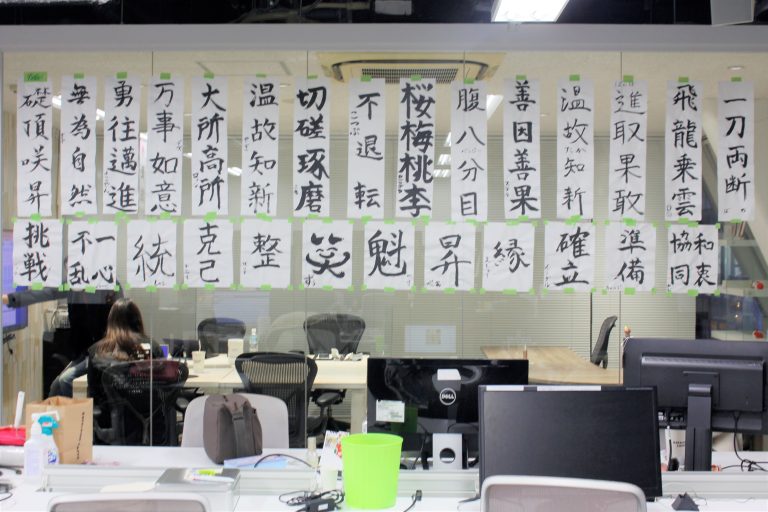 礎頂咲昇
無為自然
勇往邁進
万事如意
大所高所
温故知新
切磋琢磨
不退転
こつぶ
桜梅桃李
腹八分目
善因善果
温故知新
進取果敢
飛龍乗雲
一刀両断
挑戦
一心
不乱
統
克己
整
笑
魁
昇
縁
確立
準備
和衷
協同
DELL